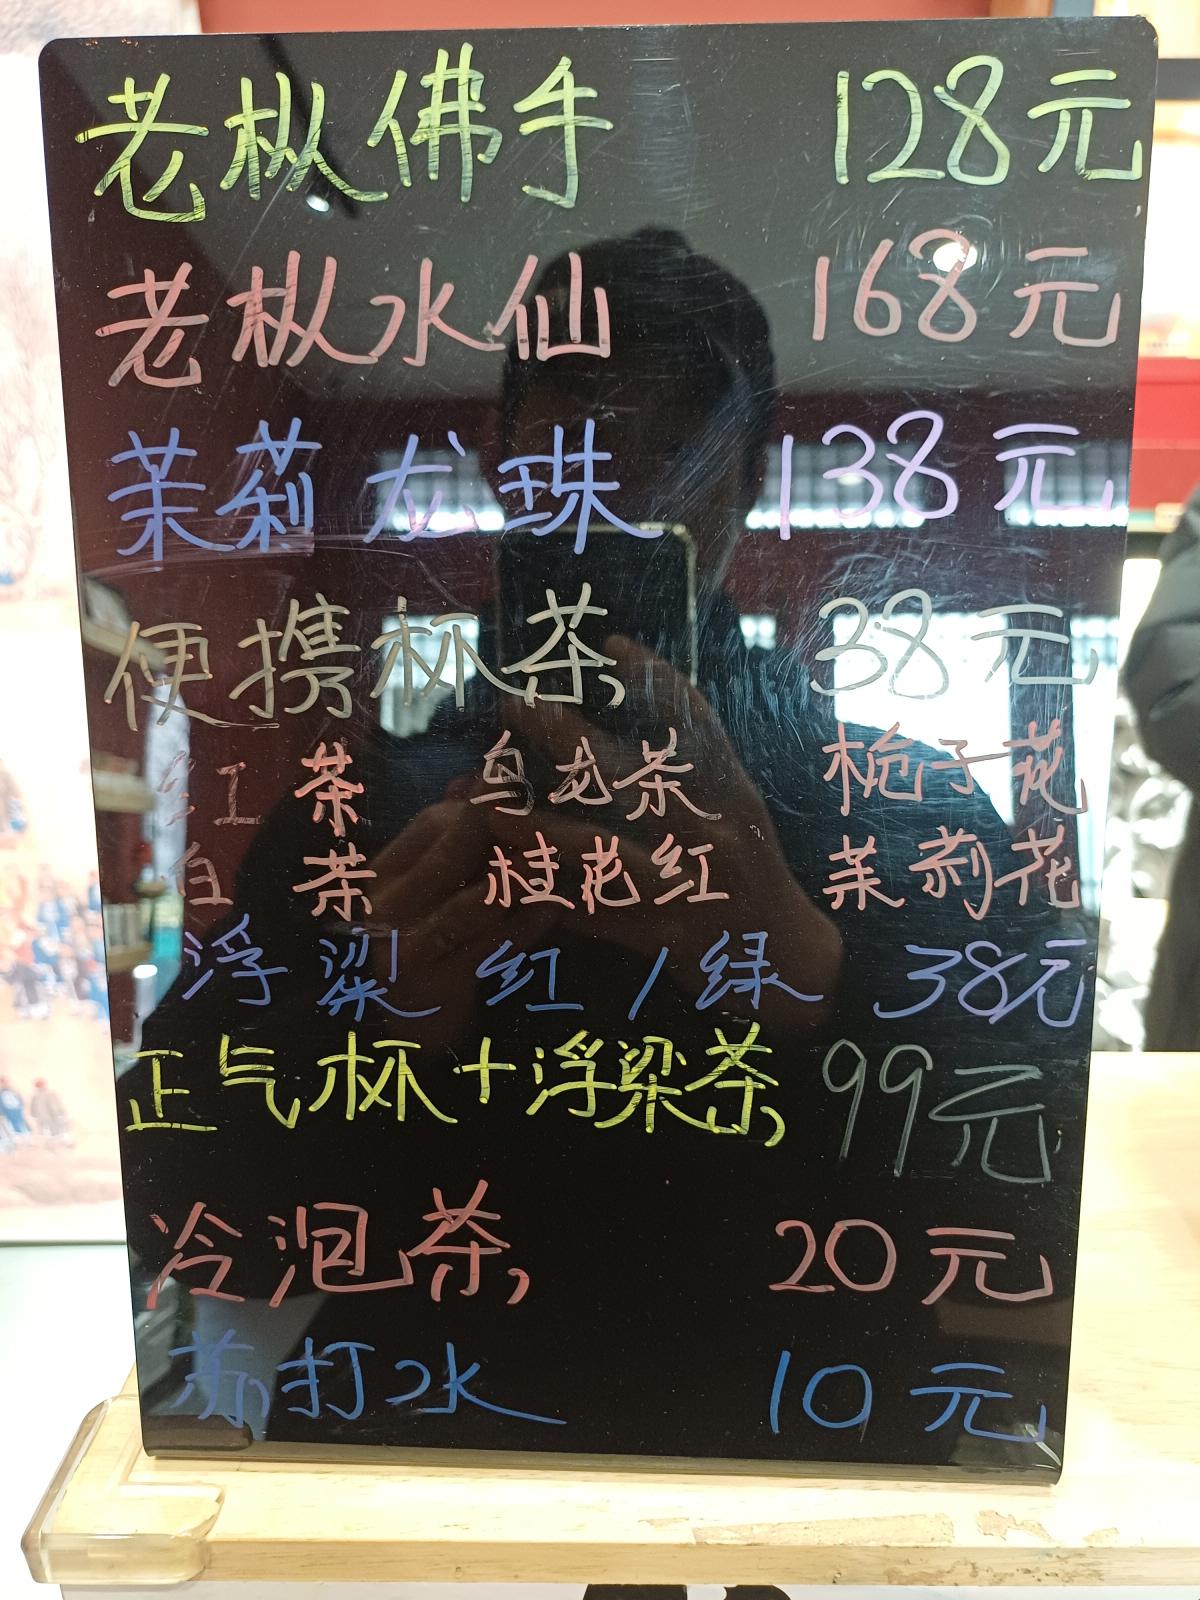 老枞佛手 128元
老枞水仙 168元
茉莉龙珠 138元
便携杯茶 38元
红茶 乌龙茶 栀子花
白茶 桂花红 茉莉花
浮梁红/绿 38元
正气杯+浮梁茶 99元
冷泡茶 20元
苏打水 10元